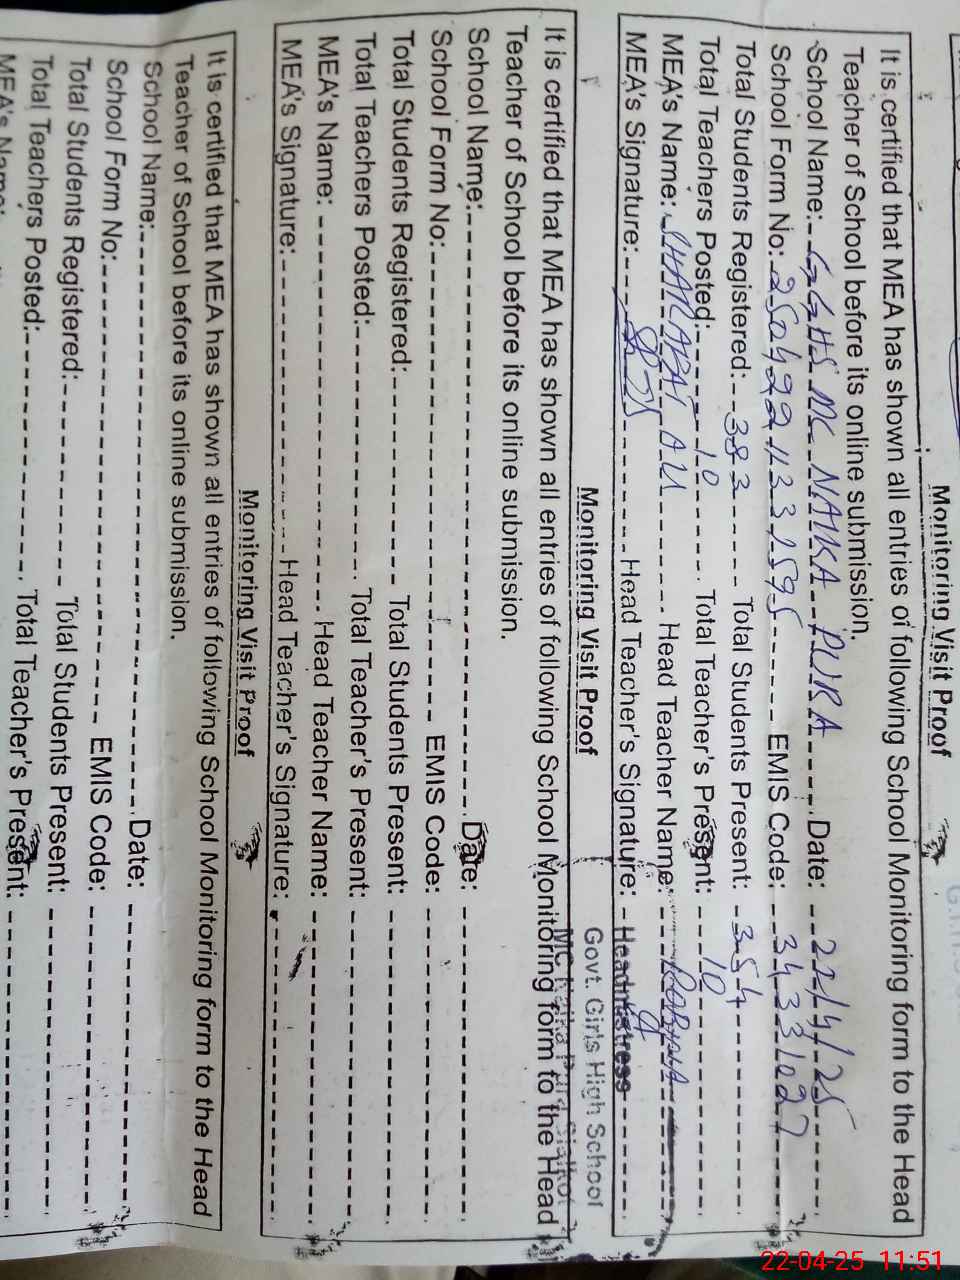 Monitoring Visit Proof
It is certified that MEA has shown all entries of following School Monitoring form to the Head
Teacher of School before its online submission.
School Name: GGHS MC NAIKA PURA Date: 22/4/25
School Form No: EMIS Code: 34331227
Total Students Registered: 383 Total Students Present: 354
Total Teachers Posted: 10 Total Teacher's Present: 10
MEA's Name: ALI Head Teacher Name:
MEA's Signature: Head Teacher's Signature:
Headmistress
Govt. Girls High School
MC Naika Pura Sialkot
Monitoring Visit Proof
It is certified that MEA has shown all entries of following School Monitoring form to the Head
Teacher of School before its online submission.
School Name: Date:
School Form No: EMIS Code:
Total Students Registered: Total Students Present:
Total Teachers Posted: Total Teacher's Present:
MEA's Name: Head Teacher Name:
MEA's Signature: Head Teacher's Signature:
Monitoring Visit Proof
It is certified that MEA has shown all entries of following School Monitoring form to the Head
Teacher of School before its online submission.
School Name: Date:
School Form No: EMIS Code:
Total Students Registered: Total Students Present:
Total Teachers Posted: Total Teacher's Present:
MEA's Name:
22-04-25 11:51